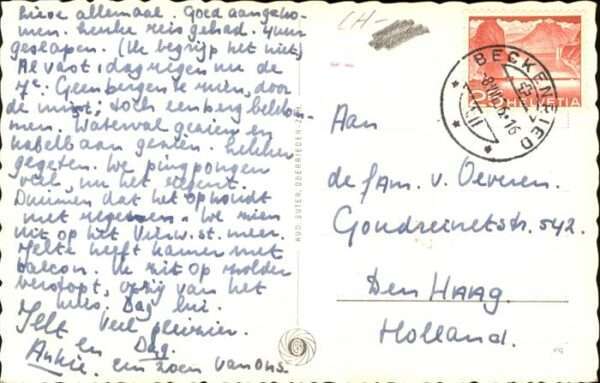 Lieve allemaal. Goed aangeko-
men. Leuke reis gehad. Fijn
geslapen. (Ik begrijp het niet)
Al vast 1 dag regen nu de
7e. Geen bergen te zien, door
de mist; toch een berg beklom-
men. Waterval gezien en
kabelbaan gezien. Lekker
gegeten. We pingpongen
veel, nu het regent.
Duimen dat het ophoudt
met regenen. We zien
uit op het Vierw. st. meer.
Jelte heeft kamer met
balcon. Ik zit op zolder
verstopt, vrij van het
huis, Dag lui.
Veel plezier.
Jelt
en Dag.
Ankie. een zoen van ons.
CH-
BECKENRIED
HELVETIA
RUD. SUTER, OBERRIEDEN-ZCH.
Aan
de fam. v. Oeveren.
Goudreinetstr. 542.
Den Haag.
Holland.